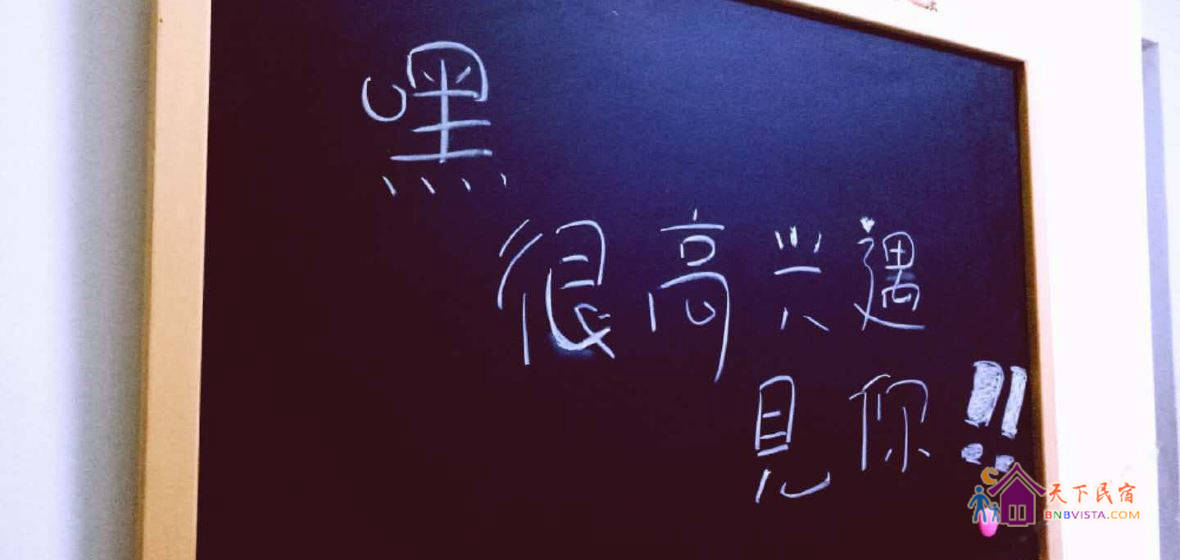 嘿
很高兴遇
見你!!
天下民宿
BNBVISTA.COM